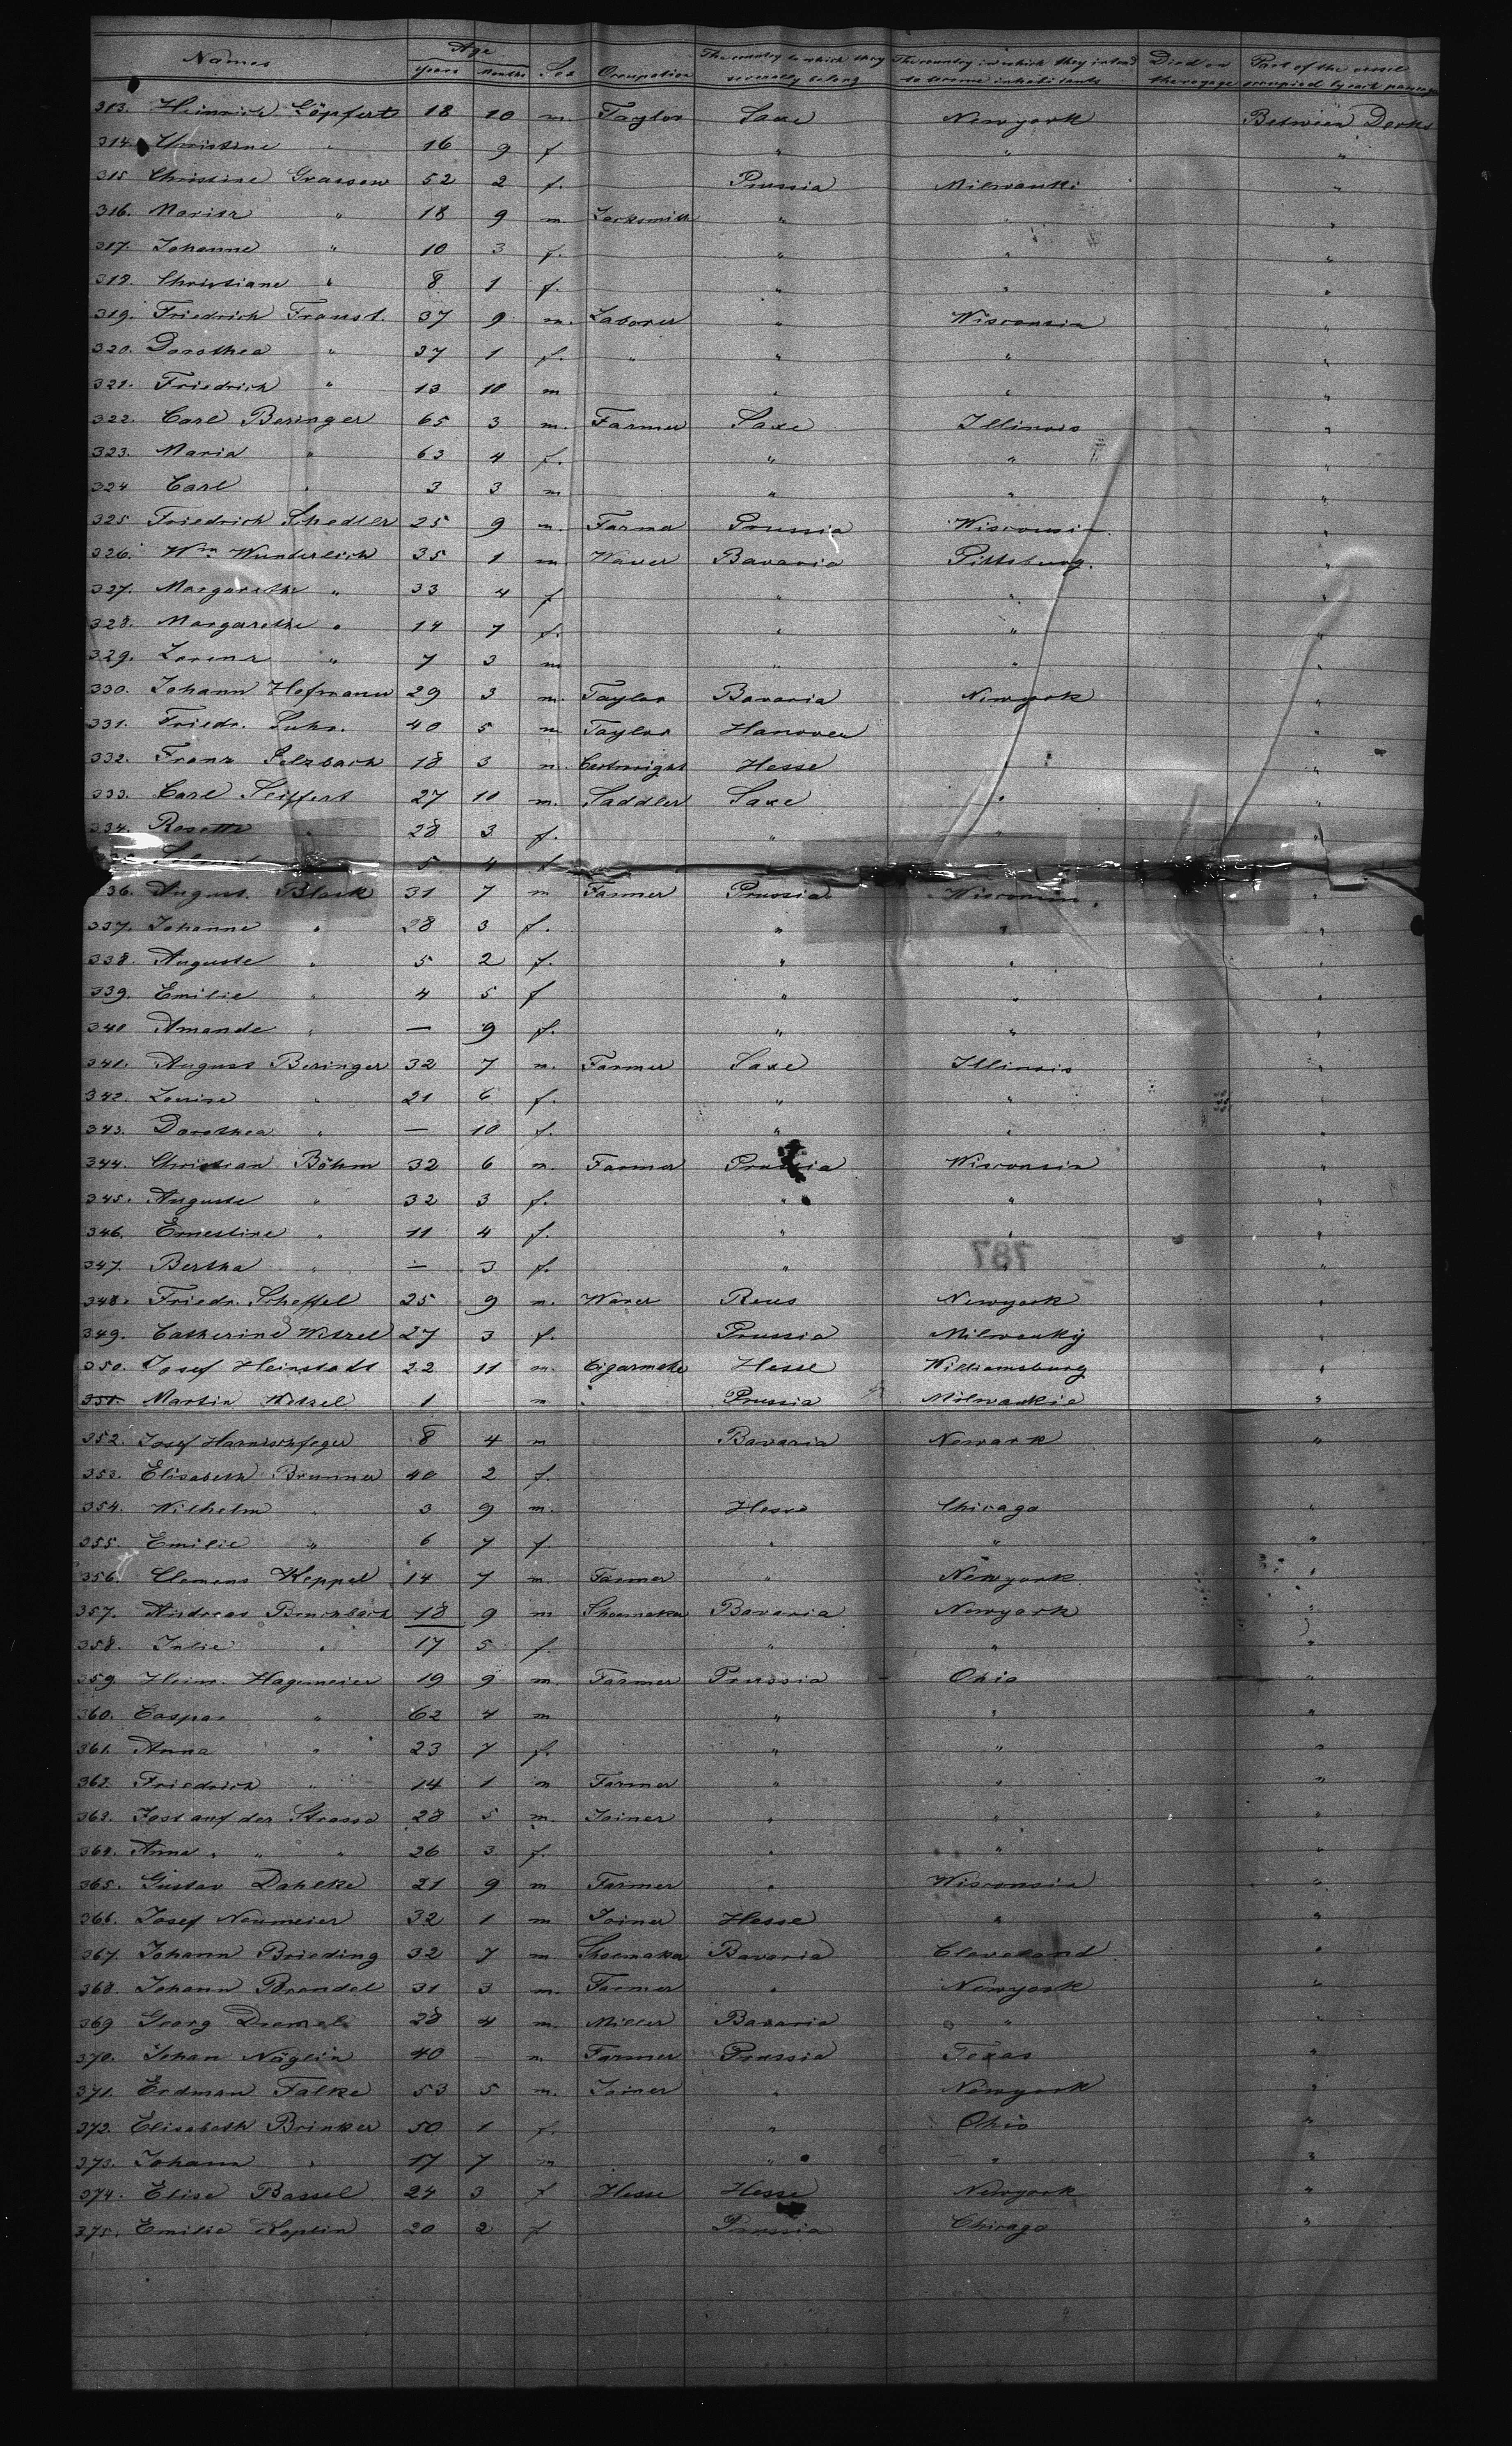 Names Age years Months Sex Occupation The country to which they severally belong The country in which they intend to become inhabitants Died on the voyage Part of the vessel occupied by each passenger
313. Heinrich Töpfert 18 10 m. Taylor Saxe Newyork Between Decks
314. Christine " 16 9 f. " " "
315 Christine Grassow 52 2 f. Prussia Milwauki "
316. Moritz " 18 9 m Locksmith " " "
317. Johanne " 10 3 f. " " "
318. Christiane " 8 1 f. " " "
319. Friedrich Fraust. 37 9 m. Laborer " Wisconsin "
320. Dorothea " 37 1 f. " " " "
321. Friedrich " 13 10 m " " "
322. Carl Beringer 65 3 m. Farmer Saxe Illinois "
323. Maria " 63 4 f. " " "
324 Carl " 3 3 m " " "
325 Friedrich Schedler 25 9 m. Farmer Prussia Wisconsin "
326. Wm Wunderlich 35 1 m Waver Bavaria Pittsburg. "
327. Margarethe " 33 4 f " " "
328. Margarethe " 14 7 f. " " "
329. Lorenz " 7 3 m " " "
330. Johann Hofmann 29 3 m. Taylor Bavaria Newyork "
331. Friedr. Suhr. 40 5 m Taylor Hanover "
332. Franz Selzbach 18 3 m. Hesse " "
333. Carl Seiffert 27 10 m. Saddler Saxe " "
334. Rosette " 28 3 f. " " "
5 4 f
336. August. Black 31 7 m Farmer Prussia Wisconsin. "
337. Johanne " 28 3 f. " " "
338. Auguste " 5 2 f. " " "
339. Emilie " 4 5 f " " "
340 Amande " — 9 f. " " "
341. August Beringer 32 7 m. Farmer Saxe Illinois "
342. Louise " 21 6 f. " " "
343. Dorothea " — 10 f. " " "
344. Christian Böhm 32 6 m. Farmer Prussia Wisconsin "
345. Auguste " 32 3 f. " " "
346. Ernestine " 11 4 f. " " "
347. Bertha " — 3 f. " " "
348. Friedr. Scheffel 25 9 m. Waver Reus Newyork "
349. Catherine Witzel 27 3 f. Prussia Milwauky "
350. Josef Heinstadt 22 11 m. Cigarmake Hesse Williamsburg "
351. Martin Witzel 1 m Prussia Milwaukie "
352. Josef Harnischfeger 8 4 m Bavaria Newark "
353. Elisabeth Brunner 40 2 f.
354. Wilhelm " 3 9 m. Hesse Chicago "
355. Emilie " 6 7 f " " "
356. Clemens Keppel 14 7 m. Farmer " Newyork "
357. Andreas Bruchbach 18 9 m Shoemaker Bavaria Newyork "
358. Julie " 17 5 f. " " "
359. Heinr. Hagemeier 19 9 m. Farmer Prussia Ohio "
360. Caspar " 62 4 m " " "
361. Anna " 23 7 f. " " "
362. Friedrich " 14 1 m Farmer " " "
363. Jost auf der Strasse 28 5 m. Joiner " " "
364. Anna " " " 26 3 f. " " "
365. Gustav Dahlke 21 9 m Farmer " Wisconsin "
366. Josef Neumeier 32 1 m Joiner Hesse " "
367. Johann Brieding 32 7 m Shoemaker Bavaria Cleveland "
368. Johann Brendel 31 3 m. Farmer " Newyork "
369 Georg 28 4 m. Miller Bavaria " "
370. Johan Näglin 40 m. Farmer Prussia Texas "
371. Erdman Falke 53 5 m. Joiner " Newyork "
372. Elisabeth Brinker 50 1 f. " Ohio "
373. Johann " 17 7 m " " "
374. Elise Bassel 24 3 f Hesse Hesse Newyork "
375. Emilie Keplin 20 2 f Prussia Chicago "